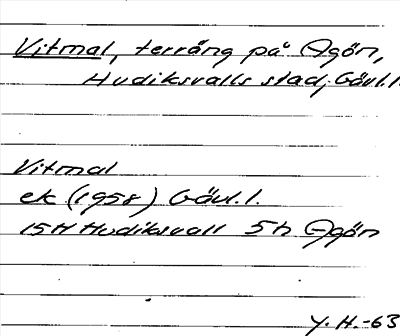 Vitmal, terräng på Agön,
Hudiksvalls stad, Gävl.l.
Vitmal
ek (1958) Gävl.l.
15H Hudiksvall 5h Agön
Y. H.-63